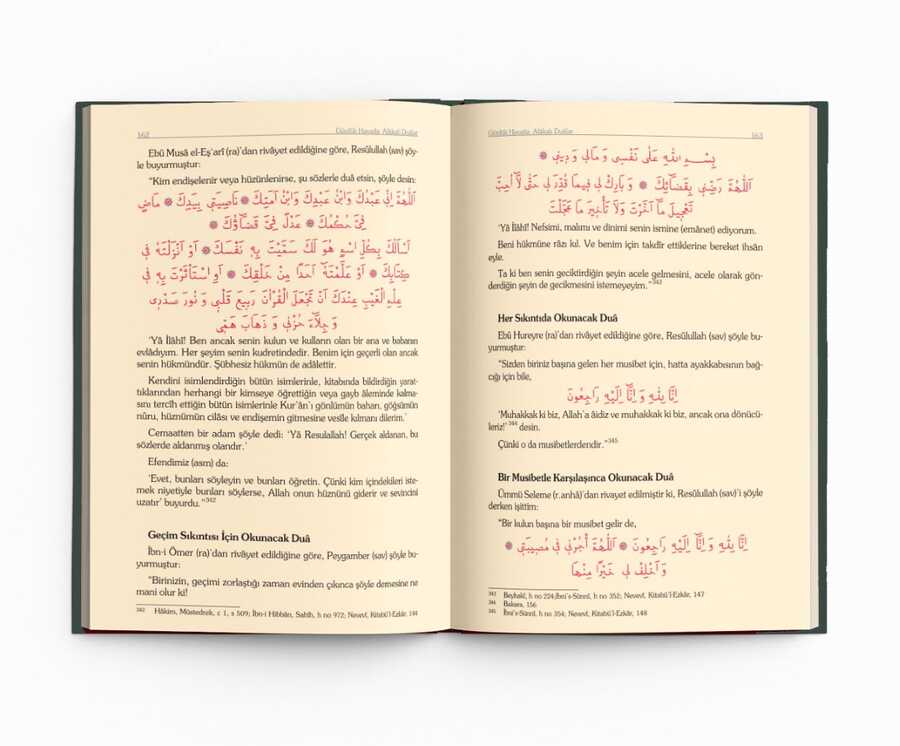 162
Günlük Hayatla Alâkalı Duâlar
Ebû Musâ el-Eş'arî (ra)'dan rivâyet edildiğine göre, Resûlullah (sav) şöy-
le buyurmuştur:
"Kim endişelenir veya hüzünlenirse, şu sözlerle duâ etsin, şöyle desin:
اَللّٰهُمَّ اِنّٖي عَبْدُكَ وَابْنُ عَبْدِكَ وَابْنُ اَمَتِكَ ۞ نَاصِيَتٖي بِيَدِكَ ۞ مَاضٍ
فِيَّ حُكْمُكَ ۞ عَدْلٌ فِيَّ قَضَاؤُكَ ۞
اَسْاَلُكَ بِكُلِّ اسْمٍ هُوَ لَكَ سَمَّيْتَ بِهٖ نَفْسَكَ ۞ اَوْ اَنْزَلْتَهُ فٖي
كِتَابِكَ ۞ اَوْ عَلَّمْتَهُ اَحَدًا مِنْ خَلْقِكَ ۞ اَوِ اسْتَاْثَرْتَ بِهٖ فٖي
عِلْمِ الْغَيْبِ عِنْدَكَ اَنْ تَجْعَلَ الْقُرْاٰنَ رَبٖيعَ قَلْبٖي وَ نُورَ صَدْرٖي
وَ جِلَاءَ حُزْنٖي وَ ذَهَابَ هَمّٖي
'Yâ İlâhî! Ben ancak senin kulun ve kulların olan bir ana ve babanın
evlâdıyım. Her şeyim senin kudretindedir. Benim için geçerli olan ancak
senin hükmündür. Şübhesiz hükmün de adâlettir.
Kendini isimlendirdiğin bütün isimlerinle, kitabında bildirdiğin yarat-
tıklarından herhangi bir kimseye öğrettiğin veya gayb âleminde kalma-
sını tercîh ettiğin bütün isimlerinle Kur'ân'ı gönlümün baharı, göğsümün
nûru, hüznümün cilâsı ve endişemin gitmesine vesîle kılmanı dilerim.'
Cemaatten bir adam şöyle dedi: 'Yâ Resulallah! Gerçek aldanan, bu
sözlerde aldanmış olandır.'
Efendimiz (asm) da:
'Evet, bunları söyleyin ve bunları öğretin. Çünki kim içindekileri iste-
mek niyetiyle bunları söylerse, Allah onun hüznünü giderir ve sevincini
uzatır' buyurdu."342
Geçim Sıkıntısı İçin Okunacak Duâ
İbn-i Ömer (ra)'dan rivâyet edildiğine göre, Peygamber (sav) şöyle bu-
yurmuştur:
"Birinizin, geçimi zorlaştığı zaman evinden çıkınca şöyle demesine ne
mani olur ki!
342 Hâkim, Müstedrek, c 1, s 509; İbn-i Hibbân, Sahîh, h no 972; Nevevî, Kitabü'l-Ezkâr, 144
Günlük Hayatla Alâkalı Duâlar
163
بِسْمِ اللّٰهِ عَلٰى نَفْسٖي وَ مَالٖي وَ دٖينٖي ۞
اَللّٰهُمَّ رَضِّنٖي بِقَضَائِكَ ۞ وَ بَارِكْ لٖي فٖيمَا قُدِّرَ لٖي حَتّٰى لَا اُحِبَّ
تَعْجٖيلَ مَا اَخَّرْتَ وَلَا تَاْخٖيرَ مَا عَجَّلْتَ
'Yâ İlâhî! Nefsimi, malımı ve dinimi senin ismine (emânet) ediyorum.
Beni hükmüne râzı kıl. Ve benim için takdîr ettiklerine bereket ihsân
eyle.
Ta ki ben senin geciktirdiğin şeyin acele gelmesini, acele olarak gön-
derdiğin şeyin de gecikmesini istemeyeyim."343
Her Sıkıntıda Okunacak Duâ
Ebû Hureyre (ra)'dan rivâyet edildiğine göre, Resûlullah (sav) şöyle bu-
yurmuştur:
"Sizden biriniz başına gelen her musibet için, hatta ayakkabısının bağ-
cığı için bile,
اِنَّا لِلّٰهِ وَ اِنَّا اِلَيْهِ رَاجِعُونَ
'Muhakkak ki biz, Allah'a âidiz ve muhakkak ki biz, ancak ona dönücü-
leriz!'344 desin.
Çünki o da musibetlerdendir."345
Bir Musibetle Karşılaşınca Okunacak Duâ
Ümmü Seleme (r.anhâ)'dan rivayet edilmiştir ki, Resûlullah (sav)'i şöyle
derken işittim:
"Bir kulun başına bir musibet gelir de,
اِنَّا لِلّٰهِ وَ اِنَّا اِلَيْهِ رَاجِعُونَ ۞ اَللّٰهُمَّ اْجُرْنٖي فٖي مُصٖيبَتٖي ۞
وَ اَخْلِفْ لٖي خَيْرًا مِنْهَا
343 Beyhakî, h no 224;İbnü's-Sünnî, h no 352; Nevevî, Kitabü'l-Ezkâr, 147
344 Bakara, 156
345 İbnü's-Sünnî, h no 354; Nevevî, Kitabü'l-Ezkâr, 148